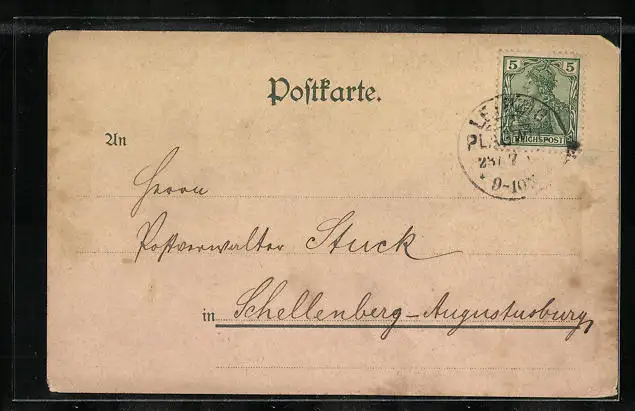 Postkarte.
5 5
REICHSPOST
PL
9-10
An
Herrn
Postverwalter Stuck
in Schellenberg-Augustusburg,